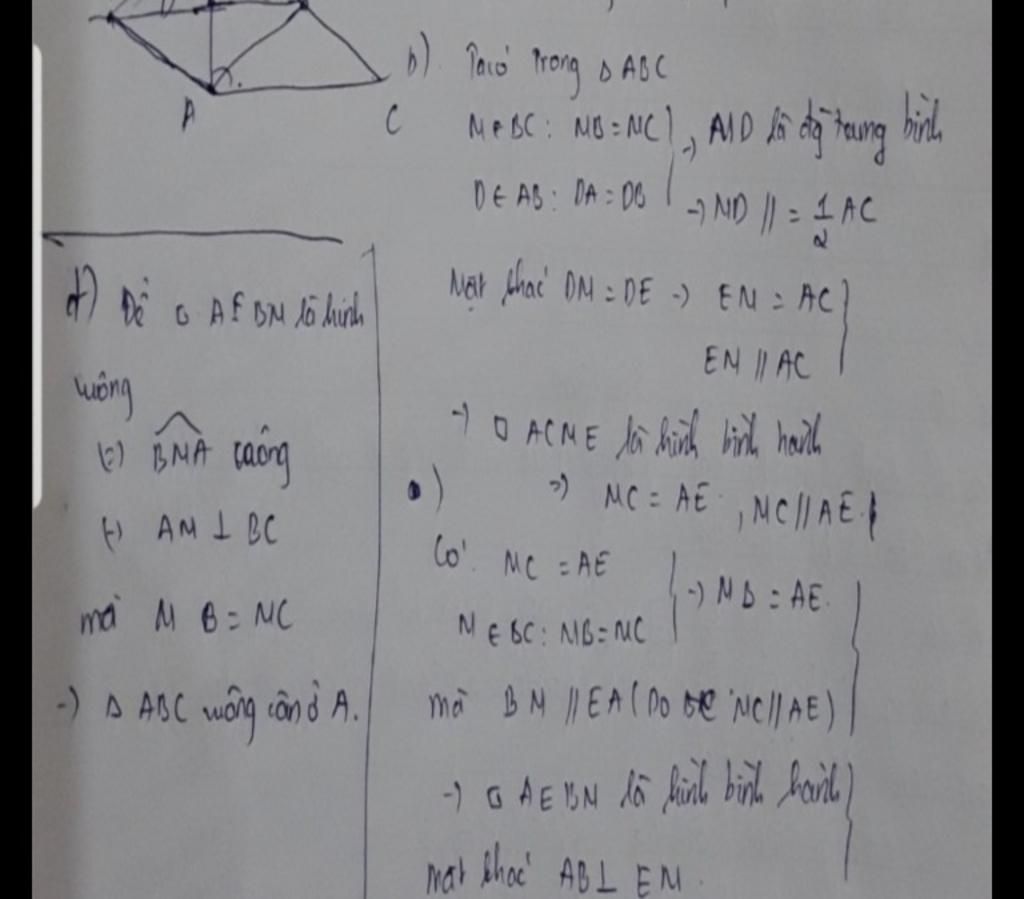 A
C
b) Ta có trong △ ABC
M ∈ BC: MB = MC } → MD là đg trung bình
D ∈ AB: DA = DB → MD // = 1/2 AC
Mặt khác DM = DE → EM = AC }
EM // AC
→ □ ACME là hình bình hành
•) => MC = AE, MC // AE.
Có: MC = AE } → MB = AE. }
M ∈ BC: MB = MC
mà BM // EA (Do MC // AE)
→ □ AEBM là hình bình hành }
mặt khác AB ⊥ EM.
d) Để □ AEBM là hình
vuông
(=) BMA vuông
(=) AM ⊥ BC
mà MB = MC
→ △ ABC vuông cân ở A.